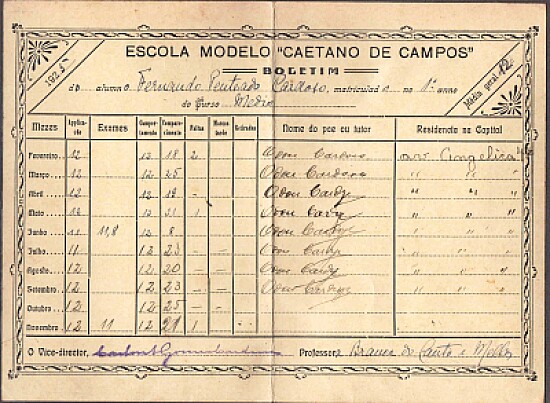 192
ESCOLA MODELO "CAETANO DE CAMPOS"
BOLETIM
do alumno Fernando Penteado Cardoso, matriculado no 1º anno
do Curso Medio
Média geral 12
Mezes Applicação Exames Comportamento Comparecimento Faltas Retiradas Nome do pae ou tutor Residencia na Capital
Fevereiro 12 12 18 2 Odon Cardoso av Angelica
Março 12 12 25 Odon Cardoso " "
Abril 12 12 19 - Odon " " "
Maio 12 12 21 1 Odon " " "
Junho 11 11,8 12 8 Odon " " "
Julho 11 12 23 - - " " "
Agosto 12 12 20 - - Odon " " "
Setembro 12 12 23 - - Odon " " "
Outubro 12 12 25 - -
Novembro 12 11 12 21 1
O Vice-director, Professora Branca do Canto e Mello